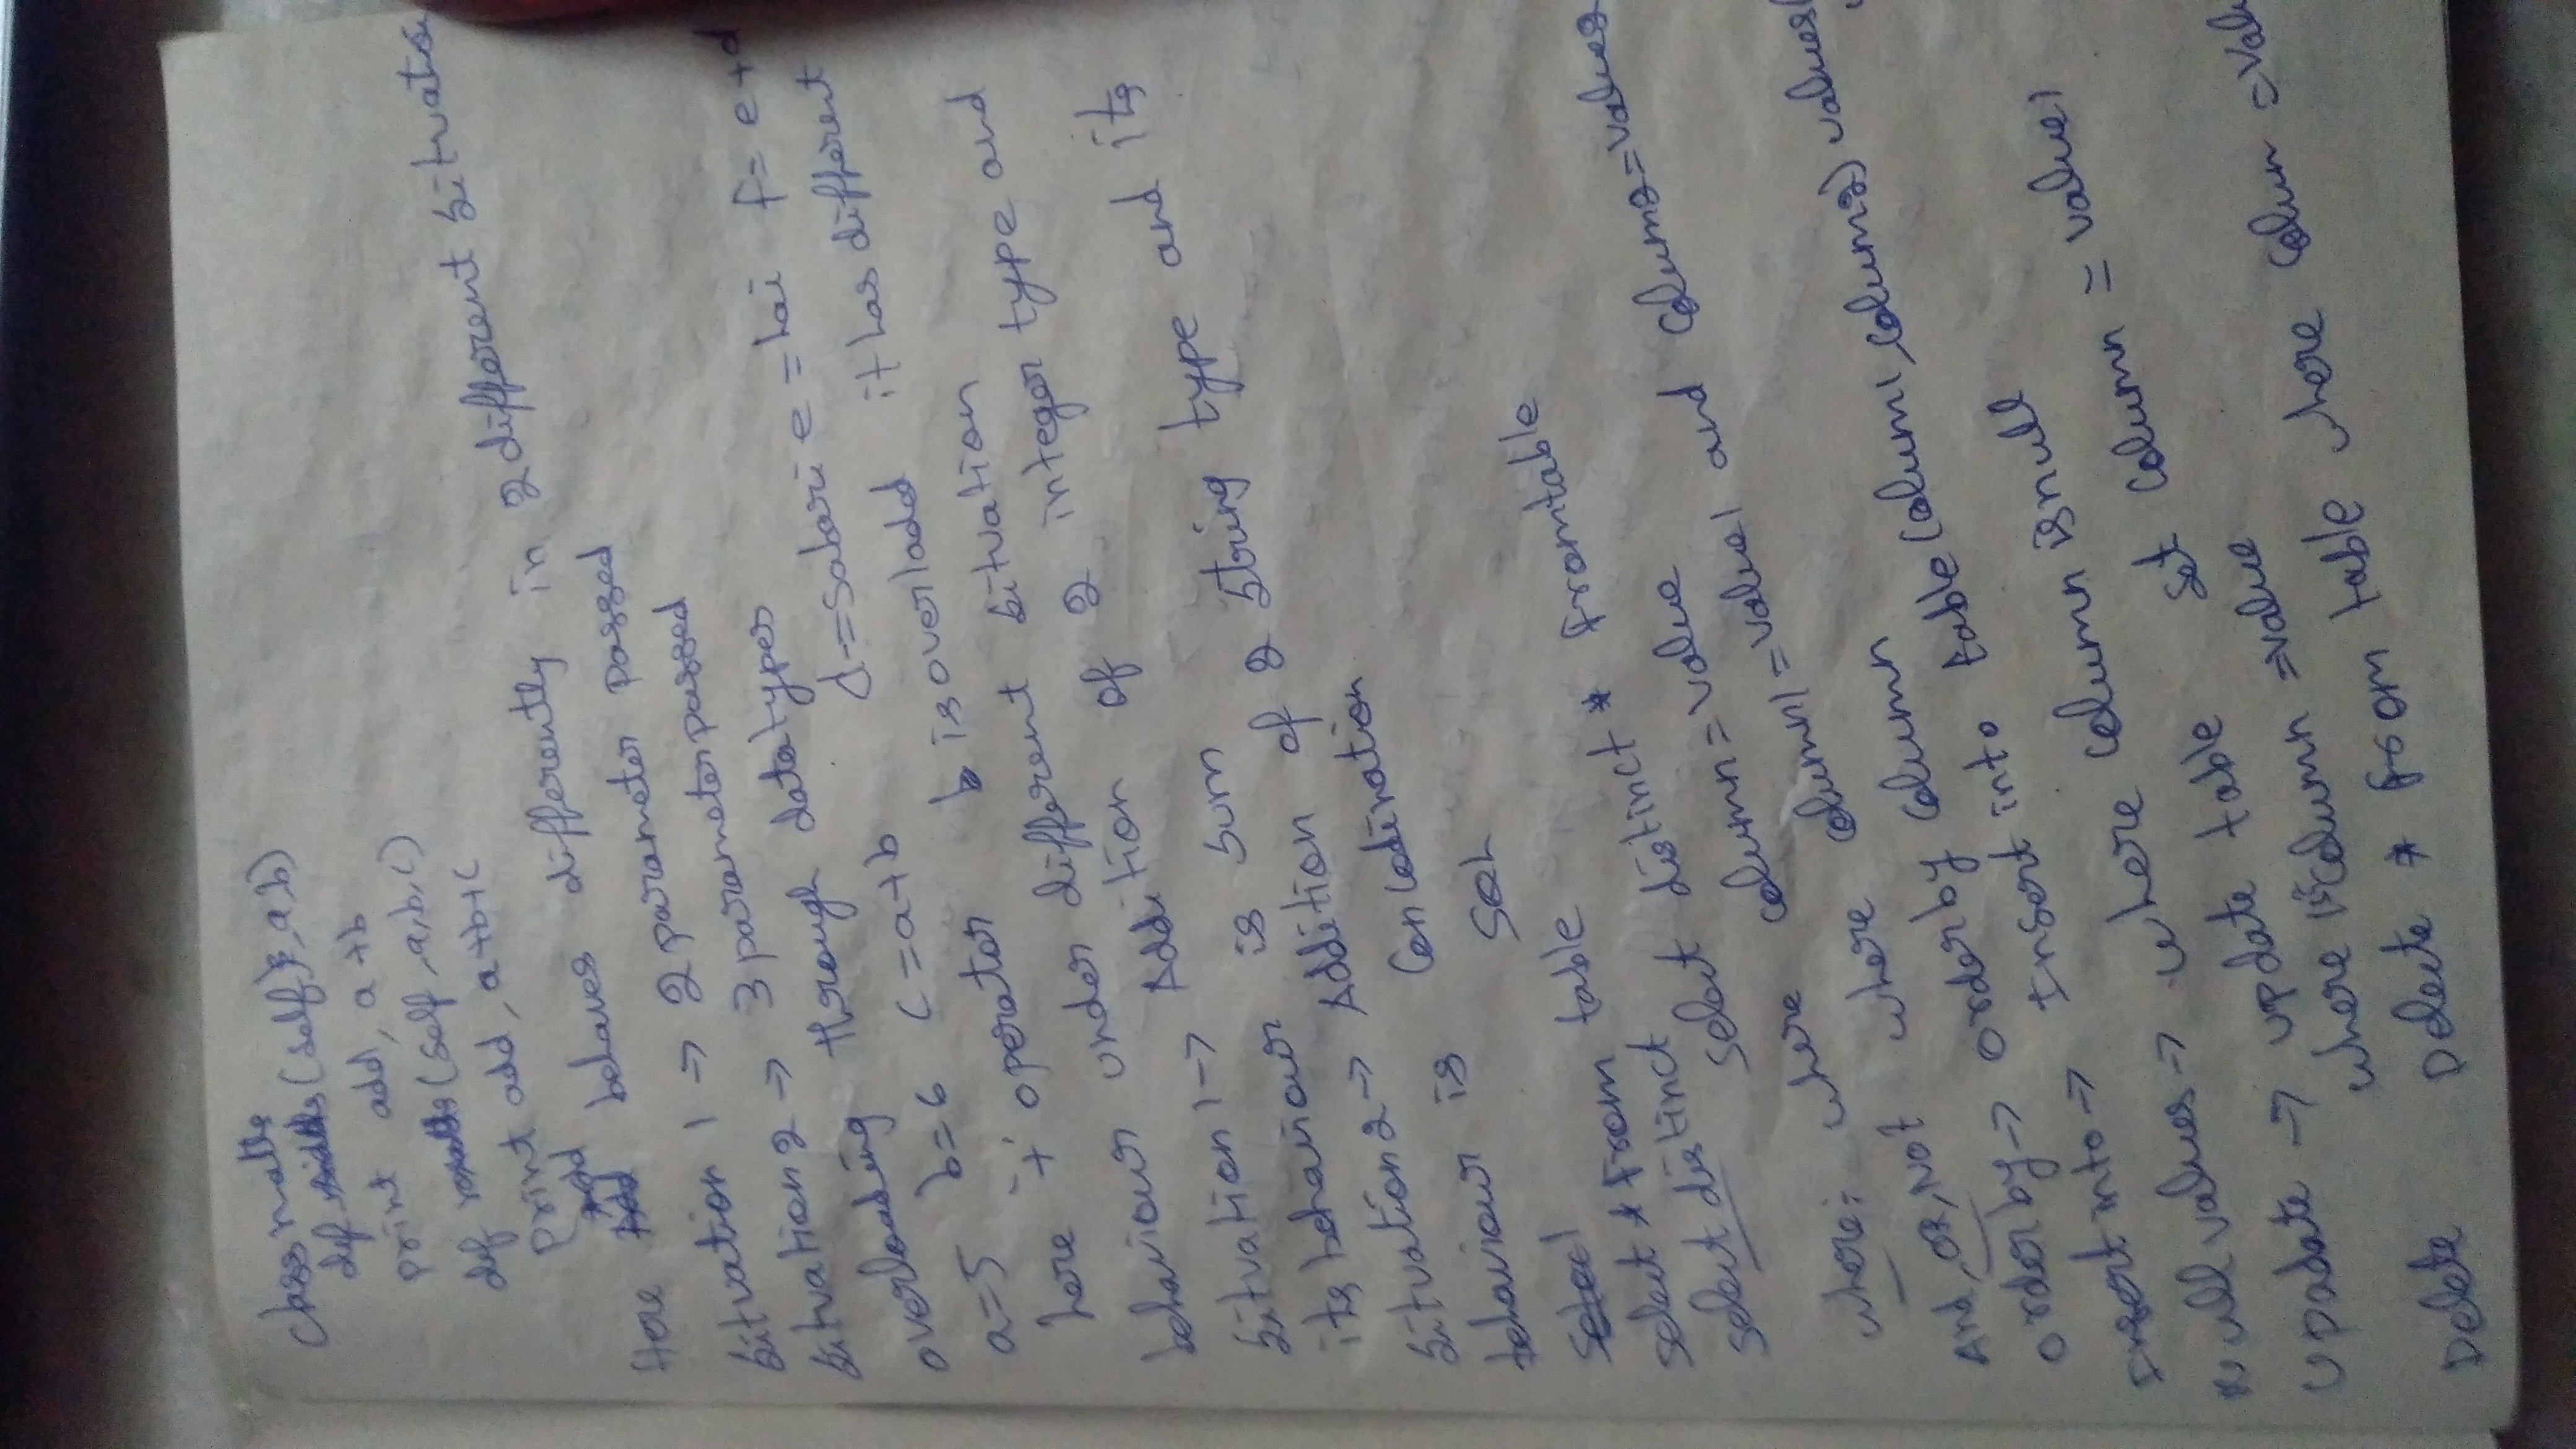 class maths
def (self, a, b)
print add, a+b
def (self, a, b, c)
print add, a+b+c
Here add behaves differently in 2 different situatio
situation 1 → 2 parameter passed
situation 2 → 3 parameter passed
overloading through datatypes
a=5 b=6 c=a+b d=sabari e=hai f=e+d
here '+' operator is overloaded it has different
behaviour under different situation
situation 1 → Addition of 2 integer type and
its behaviour is sum
situation 2 → Addition of 2 string type and its
behaviour is
SQL
select * From table
select distinct select distinct * from table
where: where column = value
And, OR, Not where column1 = value1 and column2 = values
order by → order by column
Insert into → Insert into table (column1, column2) values(
Null values → where column is null
update → update table set column = value1
where column = value
Delete Delete * from table where column = val